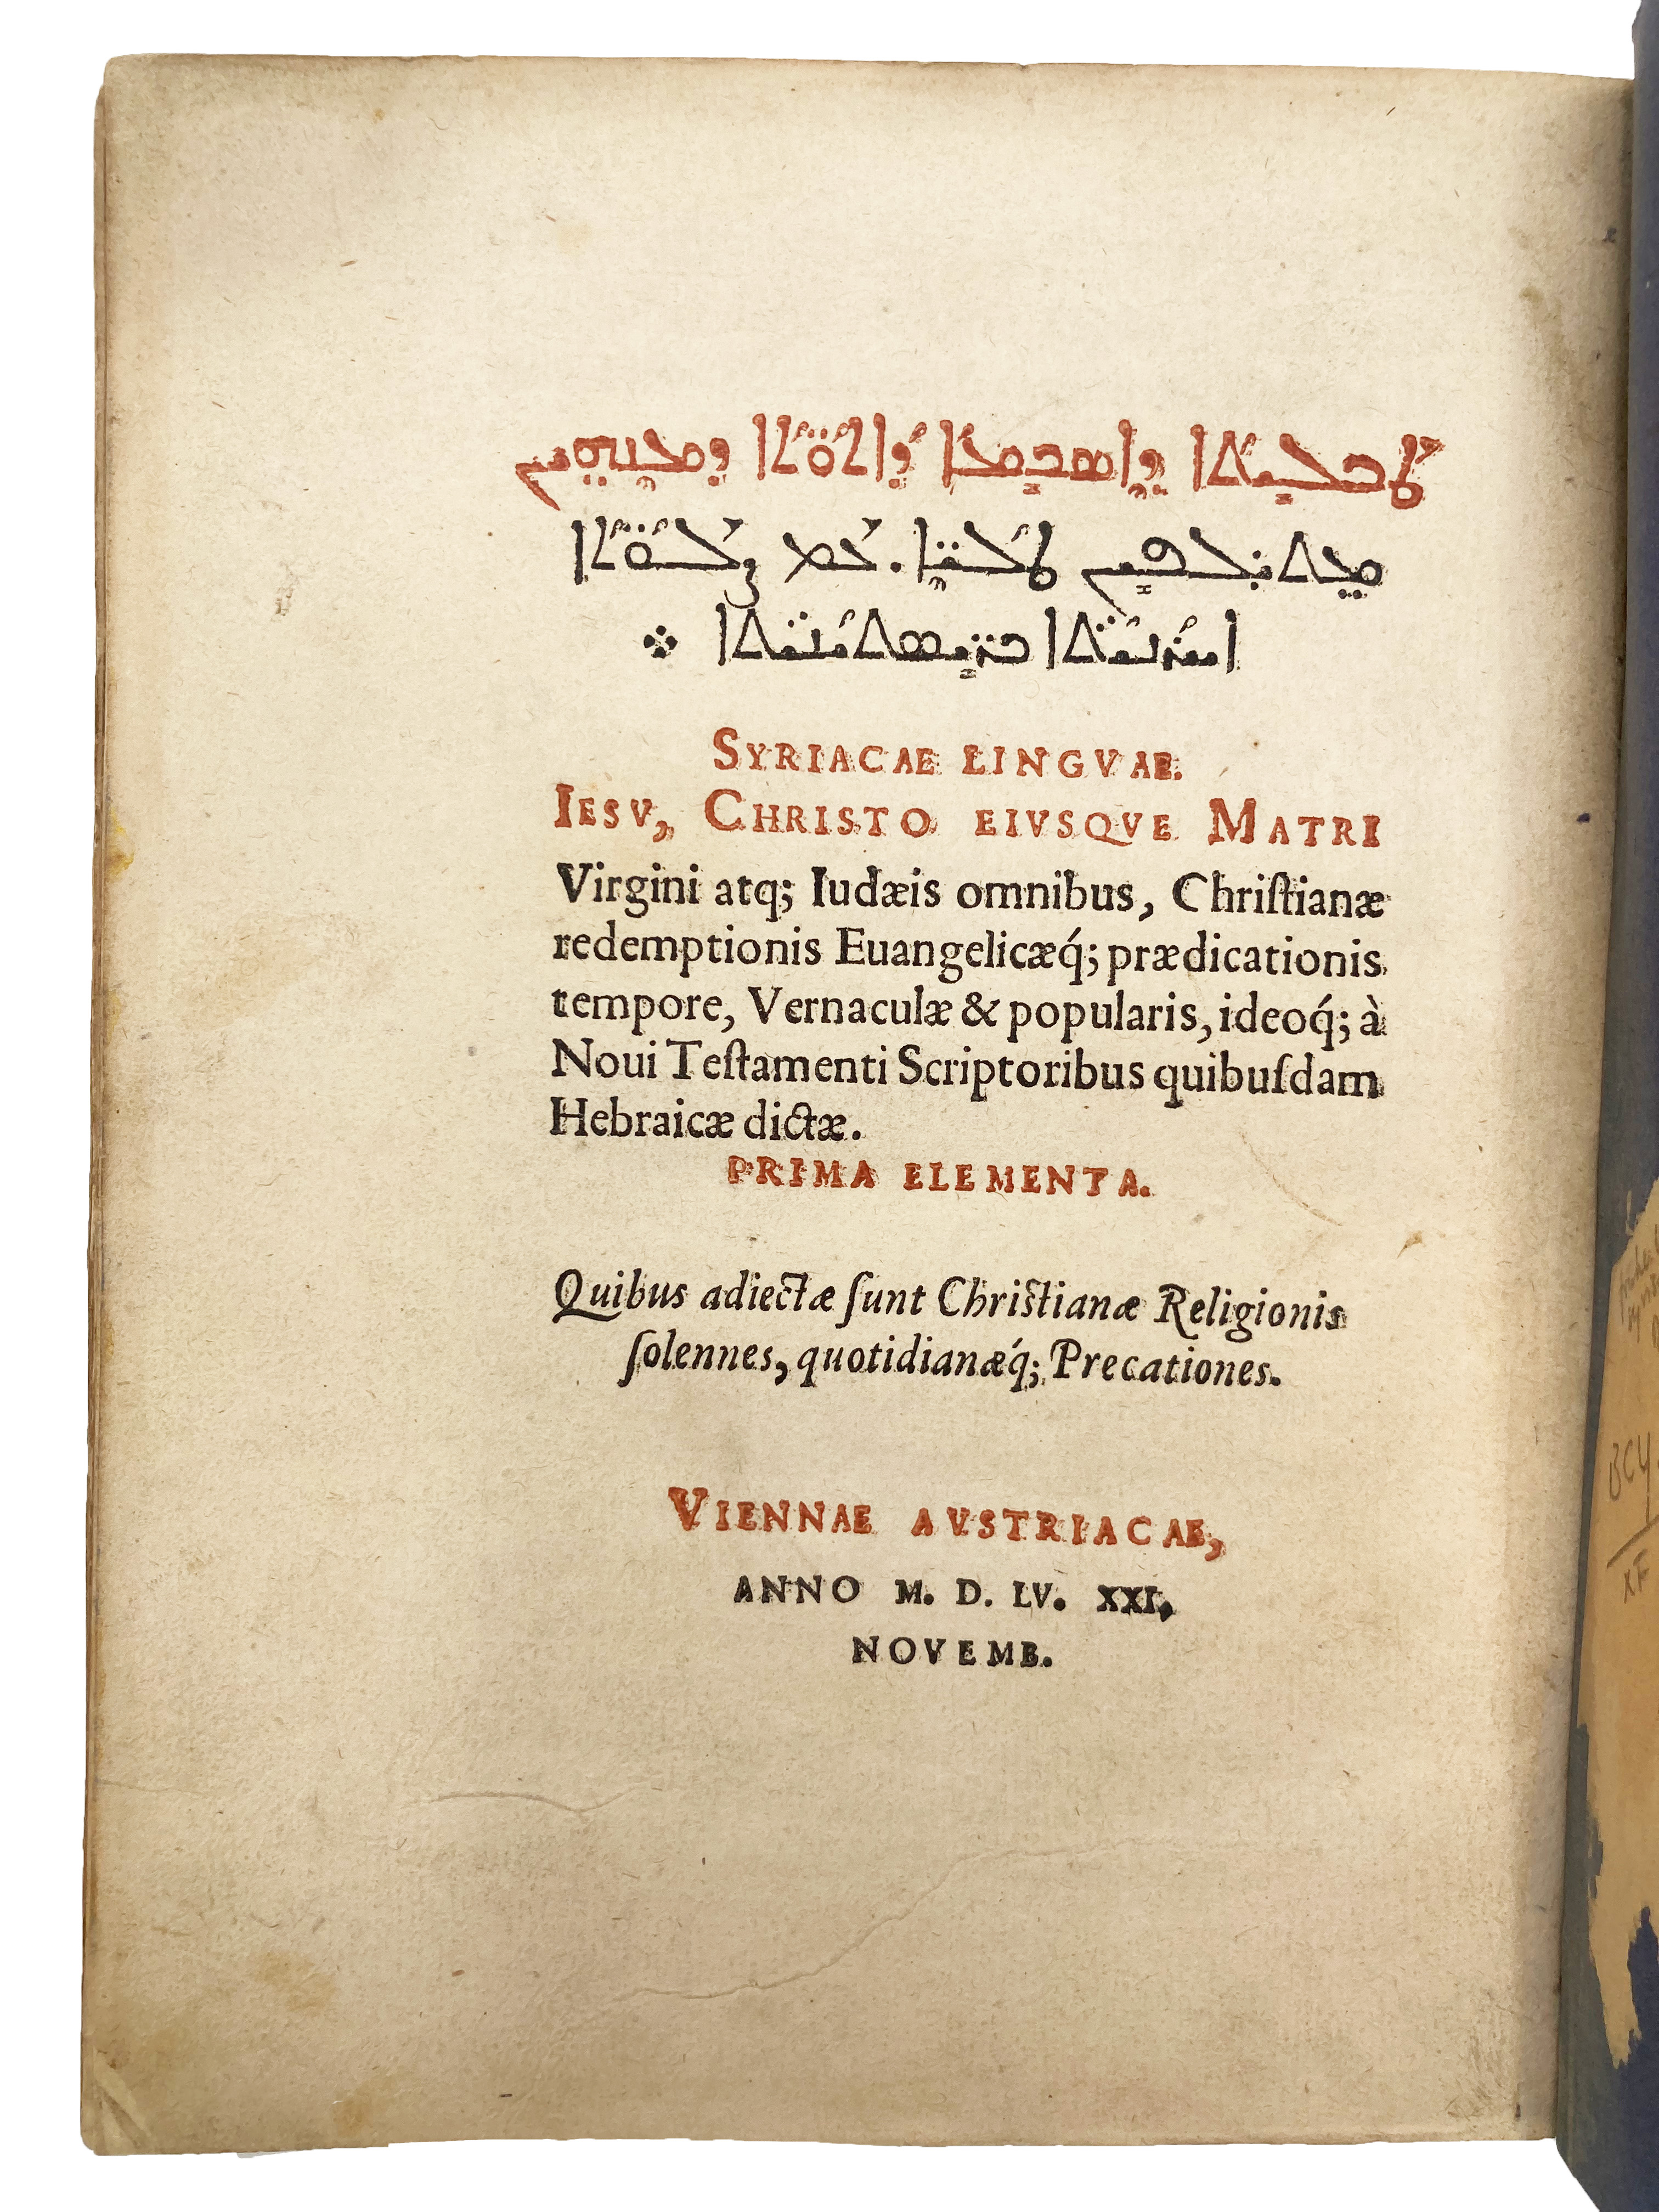 ܕܐܬܘܬܐ
ܛܠܝܐ. ܥܡ ܨܠܘܬܐ
SYRIACAE LINGVAE.
IESV, CHRISTO EIVSQVE MATRI
Virgini atq; Iudæis omnibus, Chriſtianæ
redemptionis Euangelicæq́; prædicationis
tempore, Vernaculæ & popularis, ideoq́; à
Noui Teſtamenti Scriptoribus quibuſdam
Hebraicæ dictæ.
PRIMA ELEMENTA.
Quibus adiectæ ſunt Chriſtianæ Religionis
ſolennes, quotidianæq́; Precationes.
VIENNAE AVSTRIACAE,
ANNO M. D. LV. XXI,
NOVEMB.
BCY
XF